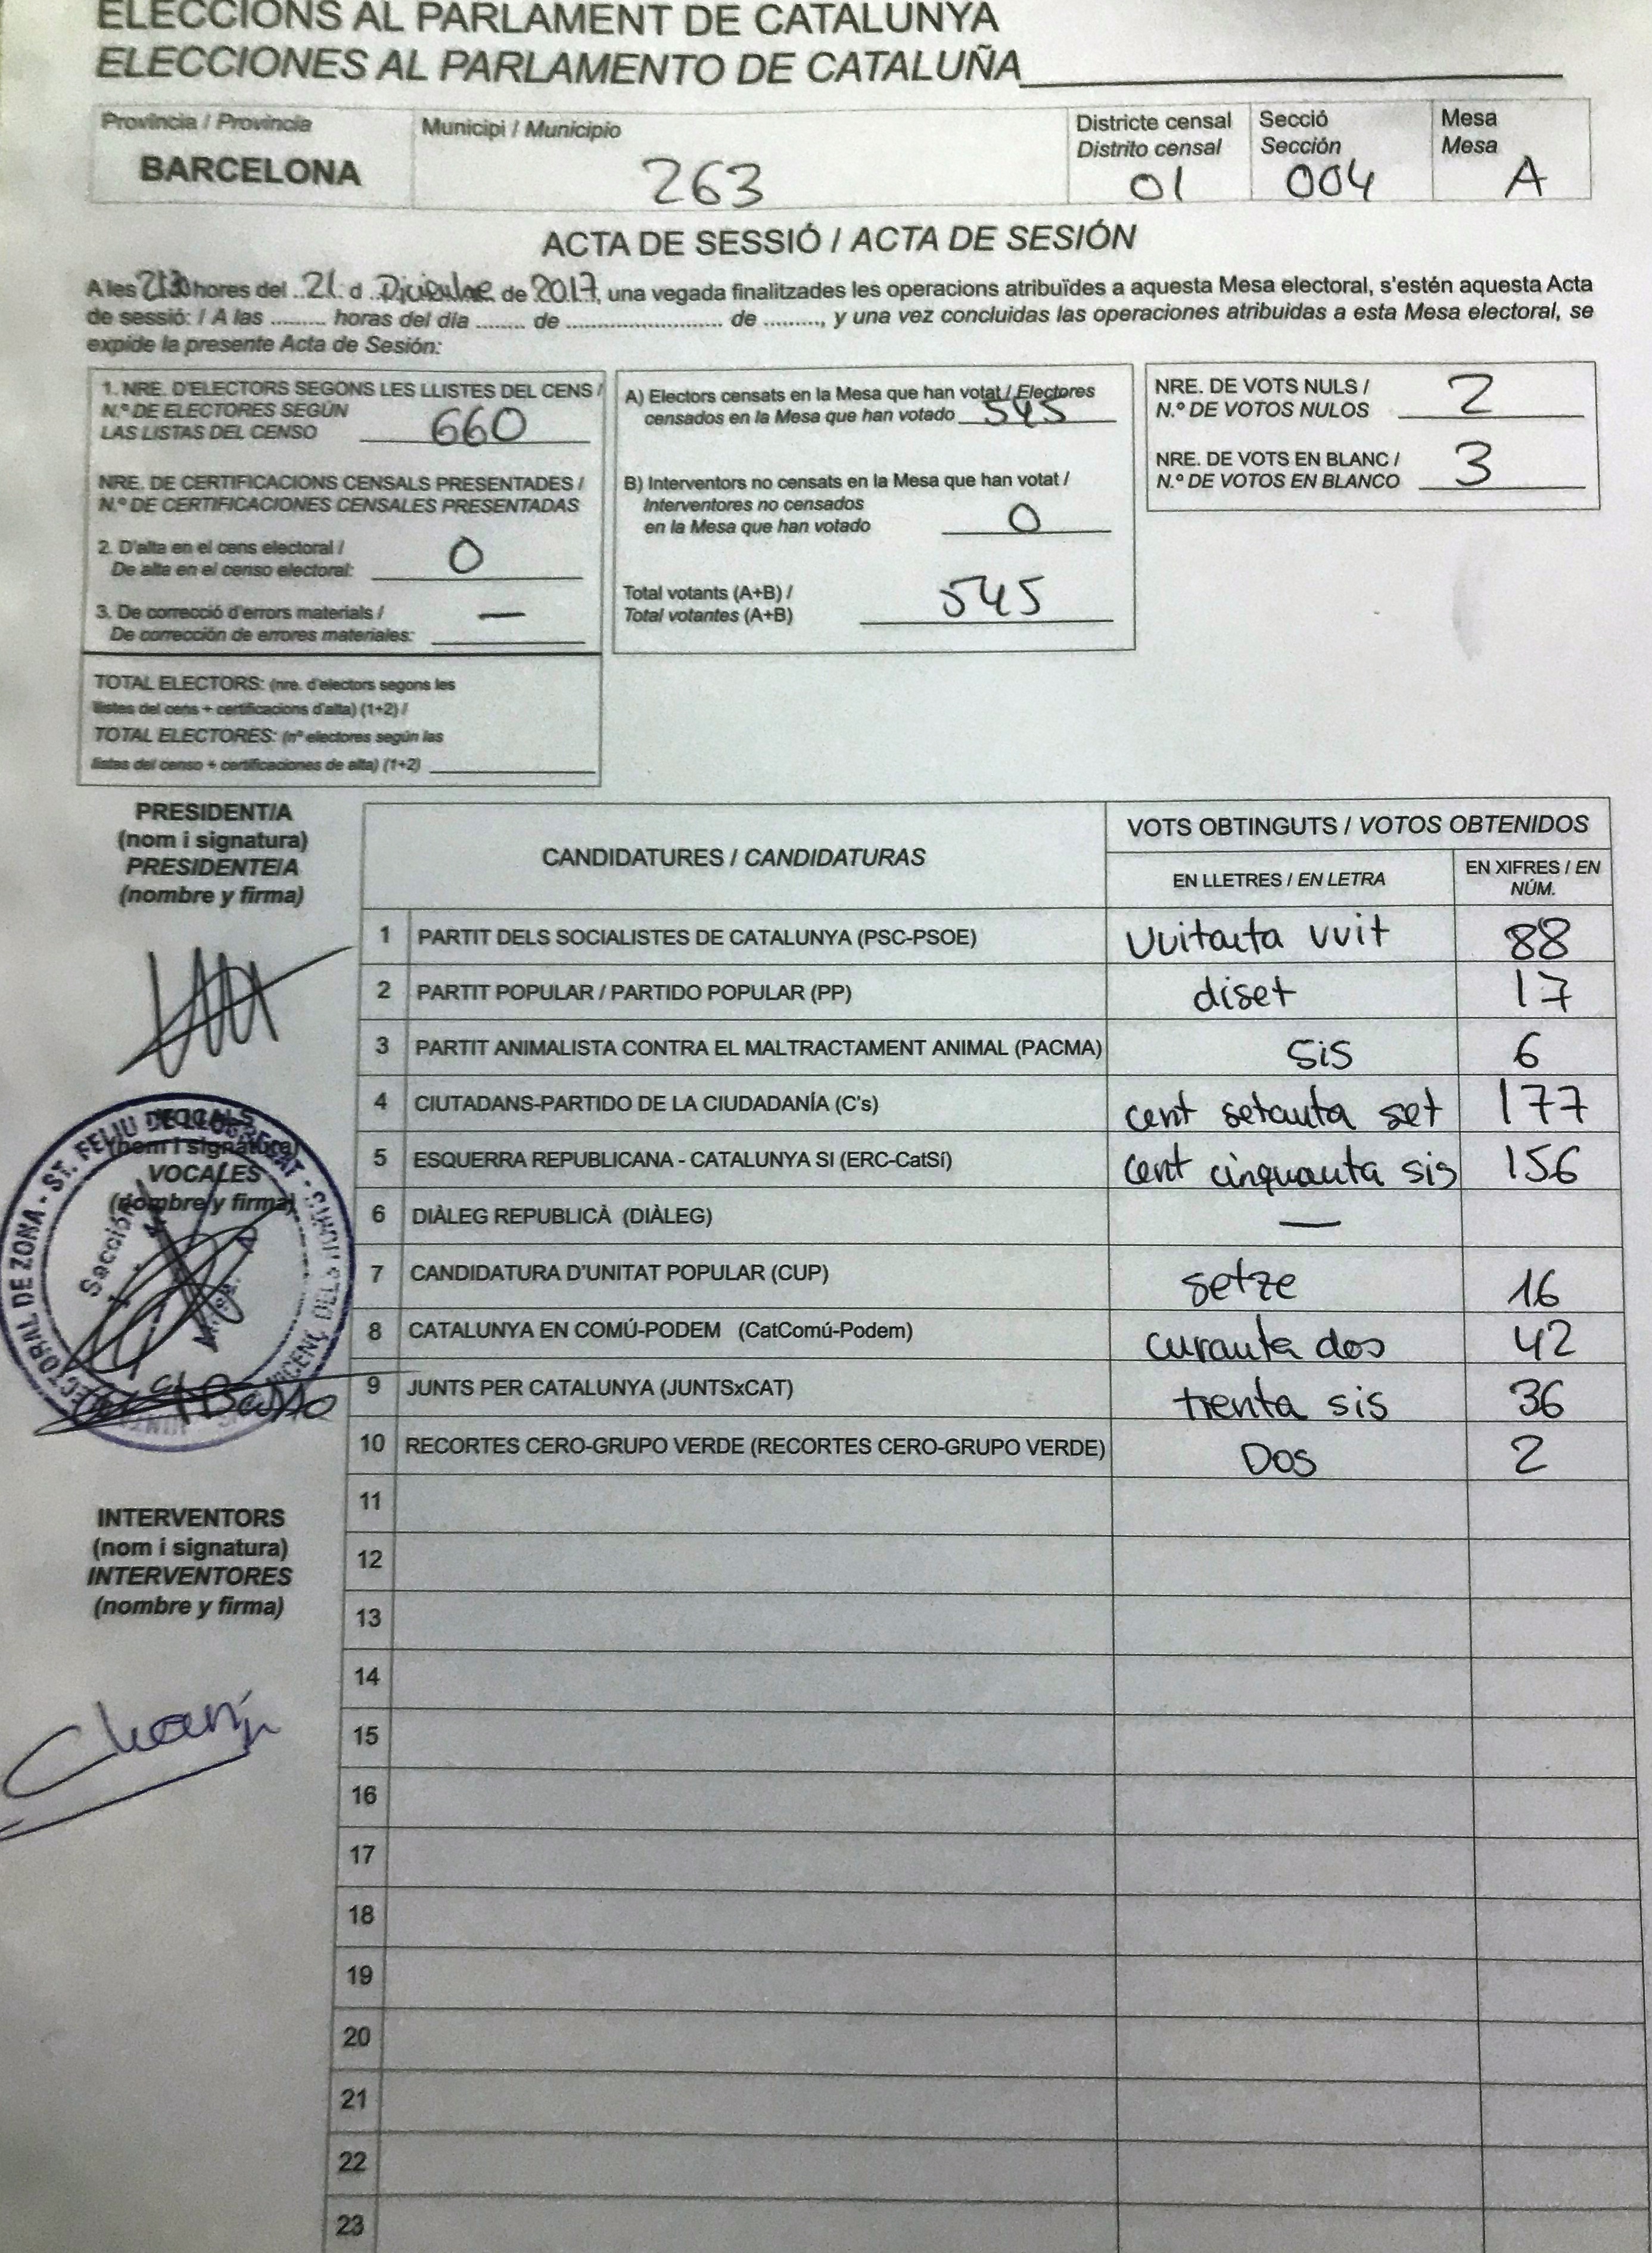 ELECCIONS AL PARLAMENT DE CATALUNYA
ELECCIONES AL PARLAMENTO DE CATALUÑA
Província / Provincia
BARCELONA
Municipi / Municipio
263
Districte censal
Distrito censal
01
Secció
Sección
004
Mesa
Mesa
A
ACTA DE SESSIÓ / ACTA DE SESIÓN
A les 21:30 hores del 21 d Diciembre de 2017, una vegada finalitzades les operacions atribuïdes a aquesta Mesa electoral, s'estén aquesta Acta
de sessió: / A las ......... horas del día ........ de ............................ de .........., y una vez concluidas las operaciones atribuidas a esta Mesa electoral, se
expide la presente Acta de Sesión:
1. NRE. D'ELECTORS SEGONS LES LLISTES DEL CENS /
N.º DE ELECTORES SEGÚN
LAS LISTAS DEL CENSO 660
NRE. DE CERTIFICACIONS CENSALS PRESENTADES /
N.º DE CERTIFICACIONES CENSALES PRESENTADAS
2. D'alta en el cens electoral /
De alta en el censo electoral: 0
3. De correcció d'errors materials /
De corrección de errores materiales: —
TOTAL ELECTORS: (nre. d'electors segons les
llistes del cens + certificacions d'alta) (1+2) /
TOTAL ELECTORES: (nº electores según las
listas del censo + certificaciones de alta) (1+2)
A) Electors censats en la Mesa que han votat / Electores
censados en la Mesa que han votado 545
B) Interventors no censats en la Mesa que han votat /
Interventores no censados
en la Mesa que han votado 0
Total votants (A+B) /
Total votantes (A+B) 545
NRE. DE VOTS NULS /
N.º DE VOTOS NULOS 2
NRE. DE VOTS EN BLANC /
N.º DE VOTOS EN BLANCO 3
PRESIDENT/A
(nom i signatura)
PRESIDENTE/A
(nombre y firma)
CANDIDATURES / CANDIDATURAS
VOTS OBTINGUTS / VOTOS OBTENIDOS
EN LLETRES / EN LETRA
EN XIFRES / EN
NÚM.
1 PARTIT DELS SOCIALISTES DE CATALUNYA (PSC-PSOE) Vuitanta vuit 88
2 PARTIT POPULAR / PARTIDO POPULAR (PP) diset 17
3 PARTIT ANIMALISTA CONTRA EL MALTRACTAMENT ANIMAL (PACMA) sis 6
4 CIUTADANS-PARTIDO DE LA CIUDADANÍA (C's) cent setanta set 177
5 ESQUERRA REPUBLICANA - CATALUNYA SI (ERC-CatSí) cent cinquanta sis 156
6 DIÀLEG REPUBLICÀ (DIÀLEG) —
7 CANDIDATURA D'UNITAT POPULAR (CUP) setze 16
8 CATALUNYA EN COMÚ-PODEM (CatComú-Podem) curanta dos 42
9 JUNTS PER CATALUNYA (JUNTSxCAT) trenta sis 36
10 RECORTES CERO-GRUPO VERDE (RECORTES CERO-GRUPO VERDE) Dos 2
11
12
13
14
15
16
17
18
19
20
21
22
23
VOCALS
(nom i signatura)
VOCALES
(nombre y firma)
ELECTORAL DE ZONA - ST. FELIU DE LLOBREGAT
Sección
INTERVENTORS
(nom i signatura)
INTERVENTORES
(nombre y firma)